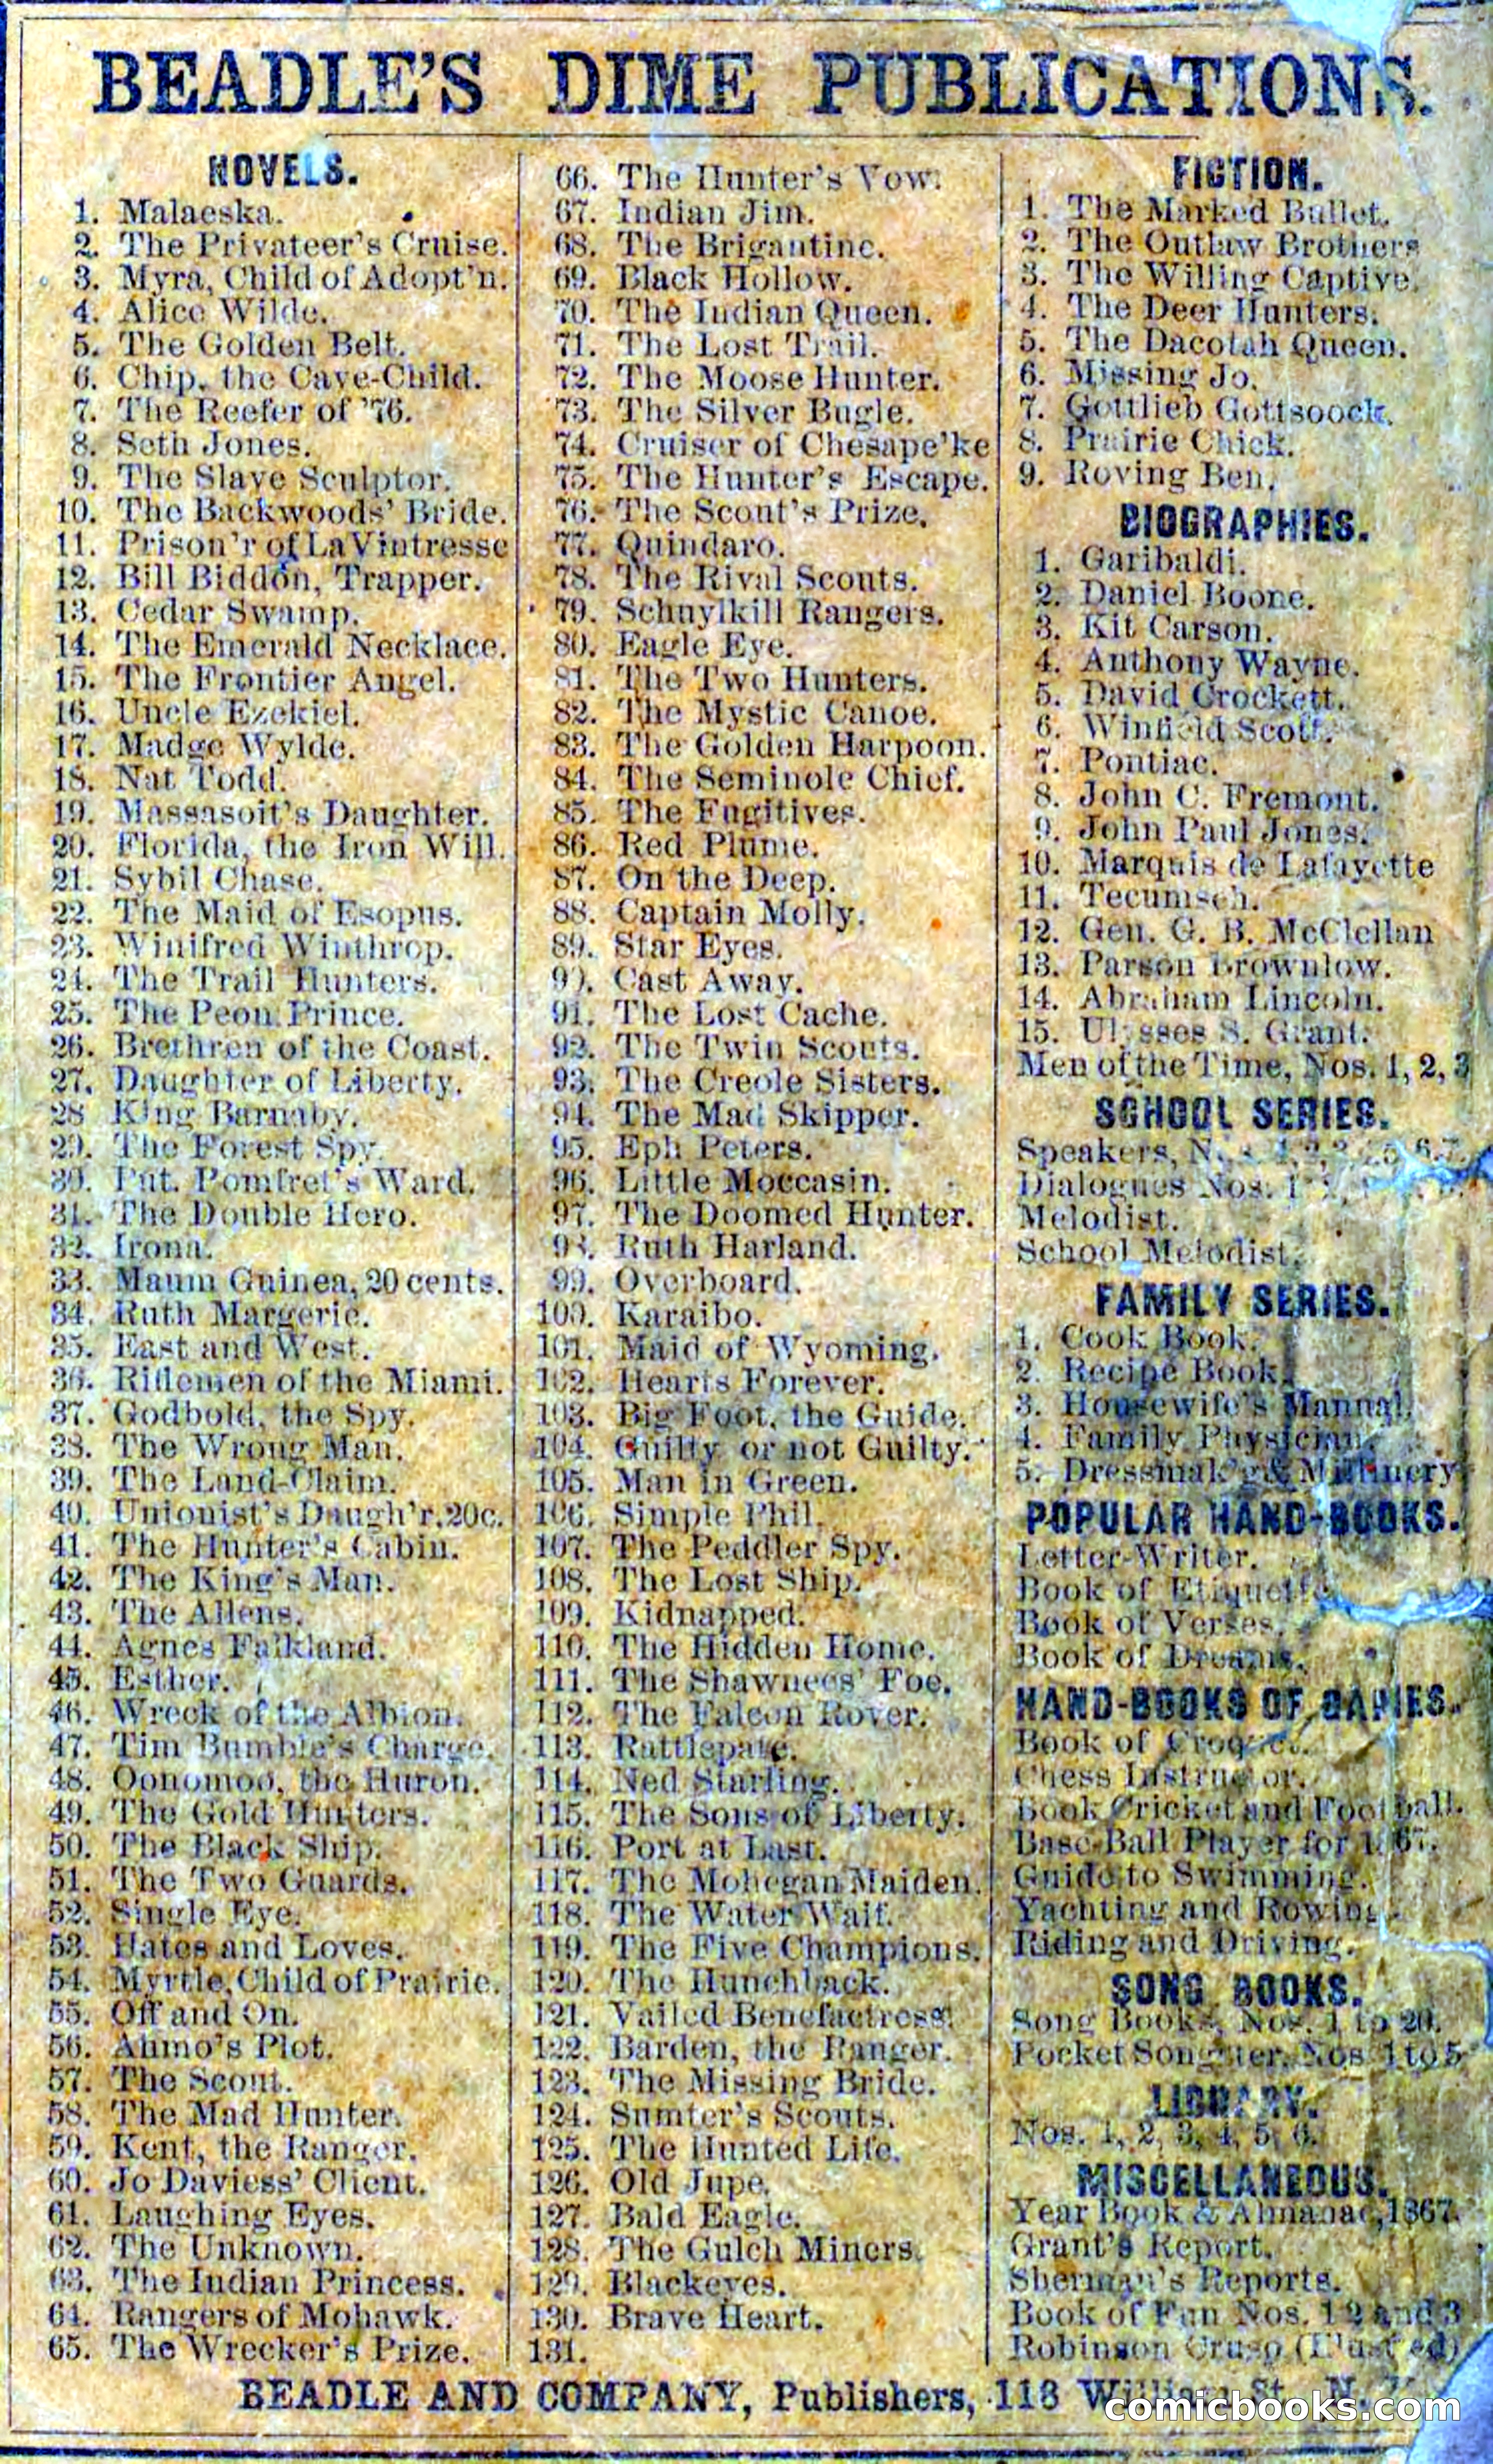 BEADLE'S DIME PUBLICATIONS.
NOVELS.
1. Malaeska.
2. The Privateer's Cruise.
3. Myra, Child of Adopt'n.
4. Alice Wilde.
5. The Golden Belt.
6. Chip, the Cave-Child.
7. The Reefer of '76.
8. Seth Jones.
9. The Slave Sculptor.
10. The Backwoods' Bride.
11. Prison'r of La Vintresse
12. Bill Biddon, Trapper.
13. Cedar Swamp.
14. The Emerald Necklace.
15. The Frontier Angel.
16. Uncle Ezekiel.
17. Madge Wylde.
18. Nat Todd.
19. Massasoit's Daughter.
20. Florida, the Iron Will.
21. Sybil Chase.
22. The Maid of Esopus.
23. Winifred Winthrop.
24. The Trail Hunters.
25. The Peon Prince.
26. Brethren of the Coast.
27. Daughter of Liberty.
28 King Barnaby.
29. The Forest Spy.
30. Put. Pomfret's Ward.
31. The Double Hero.
32. Irona.
33. Maum Guinea, 20 cents.
34. Ruth Margerie.
35. East and West.
36. Riflemen of the Miami.
37. Godbold, the Spy.
38. The Wrong Man.
39. The Land-Claim.
40. Unionist's Daugh'r, 20c.
41. The Hunter's Cabin.
42. The King's Man.
43. The Allens.
44. Agnes Falkland.
45. Esther.
46. Wreck of the Albion.
47. Tim Bumble's Charge.
48. Oonomoo, the Huron.
49. The Gold Hunters.
50. The Black Ship.
51. The Two Guards.
52. Single Eye.
53. Hates and Loves.
54. Myrtle, Child of Prairie.
55. Off and On.
56. Ahmo's Plot.
57. The Scout.
58. The Mad Hunter.
59. Kent, the Ranger.
60. Jo Daviess' Client.
61. Laughing Eyes.
62. The Unknown.
63. The Indian Princess.
64. Rangers of Mohawk.
65. The Wrecker's Prize.
66. The Hunter's Vow.
67. Indian Jim.
68. The Brigantine.
69. Black Hollow.
70. The Indian Queen.
71. The Lost Trail.
72. The Moose Hunter.
73. The Silver Bugle.
74. Cruiser of Chesape'ke
75. The Hunter's Escape.
76. The Scout's Prize.
77. Quindaro.
78. The Rival Scouts.
79. Schuylkill Rangers.
80. Eagle Eye.
81. The Two Hunters.
82. The Mystic Canoe.
83. The Golden Harpoon.
84. The Seminole Chief.
85. The Fugitives.
86. Red Plume.
87. On the Deep.
88. Captain Molly.
89. Star Eyes.
90. Cast Away.
91. The Lost Cache.
92. The Twin Scouts.
93. The Creole Sisters.
94. The Mad Skipper.
95. Eph Peters.
96. Little Moccasin.
97. The Doomed Hunter.
98. Ruth Harland.
99. Overboard.
100. Karaibo.
101. Maid of Wyoming.
102. Hearts Forever.
103. Big Foot, the Guide.
104. Guilty or not Guilty.
105. Man in Green.
106. Simple Phil.
107. The Peddler Spy.
108. The Lost Ship.
109. Kidnapped.
110. The Hidden Home.
111. The Shawnees' Foe.
112. The Falcon Rover.
113. Rattlepate.
114. Ned Starling.
115. The Sons of Liberty.
116. Port at Last.
117. The Mohegan Maiden.
118. The Water Waif.
119. The Five Champions.
120. The Hunchback.
121. Vailed Benefactress.
122. Barden, the Ranger.
123. The Missing Bride.
124. Sumter's Scouts.
125. The Hunted Life.
126. Old Jupe.
127. Bald Eagle.
128. The Gulch Miners.
129. Blackeyes.
130. Brave Heart.
131.
FICTION.
1. The Marked Bullet.
2. The Outlaw Brothers
3. The Willing Captive.
4. The Deer Hunters.
5. The Dacotah Queen.
6. Missing Jo.
7. Gottlieb Gottsoock.
8. Prairie Chick.
9. Roving Ben.
BIOGRAPHIES.
1. Garibaldi.
2. Daniel Boone.
3. Kit Carson.
4. Anthony Wayne.
5. David Crockett.
6. Winfield Scott.
7. Pontiac.
8. John C. Fremont.
9. John Paul Jones.
10. Marquis de Lafayette
11. Tecumseh.
12. Gen. G. B. McClellan
13. Parson Brownlow.
14. Abraham Lincoln.
15. Ulysses S. Grant.
Men of the Time, Nos. 1, 2, 3
SCHOOL SERIES.
Speakers,
Dialogues Nos.
Melodist.
School Melodist.
FAMILY SERIES.
1. Cook Book.
2. Recipe Book.
3. Housewife's Manual.
4. Family Physician.
5. Dressmak'g & Millinery
POPULAR HAND-BOOKS.
Letter-Writer.
Book of Etiquette
Book of Verses.
Book of Dreams.
HAND-BOOKS OF GAMES.
Book of Croquet.
Chess Instructor.
Book Cricket and Football.
Base-Ball Player for 1867.
Guide to Swimming.
Yachting and Rowing.
Riding and Driving.
SONG BOOKS.
Song Books, Nos. 1 to 20.
Pocket Songster, Nos 1 to 5
LIBRARY.
Nos. 1, 2, 3, 4, 5, 6.
MISCELLANEOUS.
Year Book & Almanac, 1867.
Grant's Report.
Sherman's Reports.
Book of Fun Nos. 1 2 and 3
Robinson Cruso (Illust'ed)
BEADLE AND COMPANY, Publishers, 118 William St., N. Y.
comicbooks.com